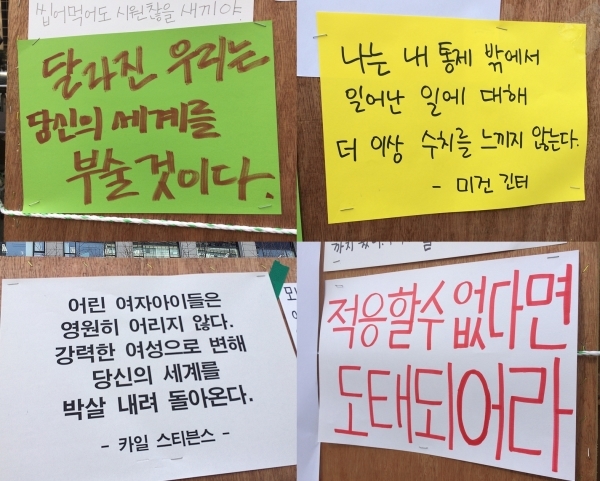 씹어먹어도 시원찮을 새끼야.
달라진 우리는
당신의 세계를
부술 것이다.
나는 내 통제 밖에서
일어난 일에 대해
더 이상 수치를 느끼지 않는다.
- 미건 긴터
어린 여자아이들은
영원히 어리지 않다.
강력한 여성으로 변해
당신의 세계를
박살 내려 돌아온다.
- 카일 스티븐스 -
적응할수 없다면
도태되어라